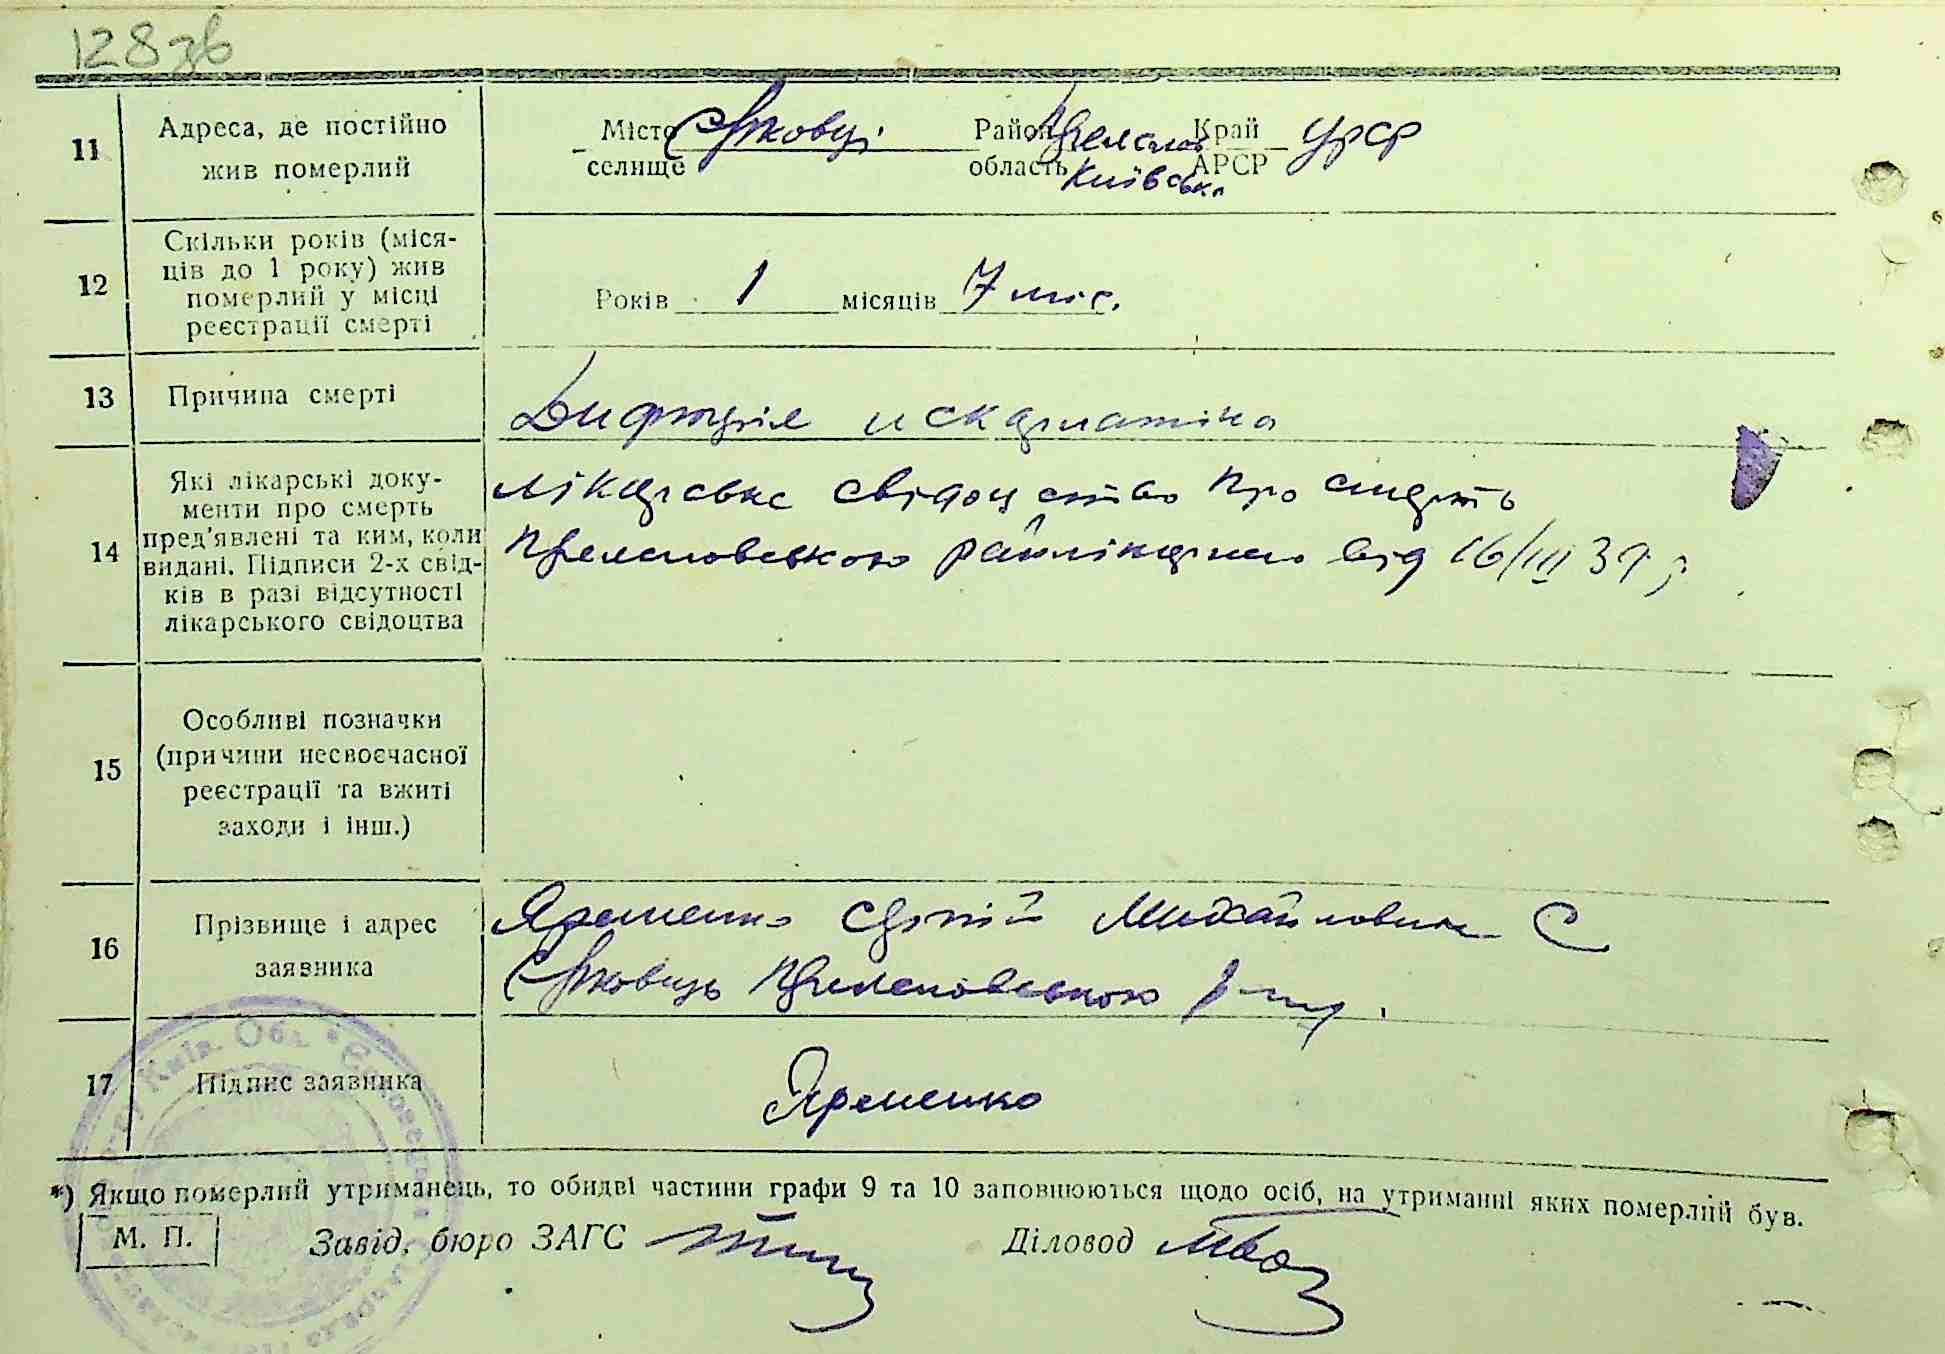 128зв
11 Адреса, де постійно жив померлий
Місто селище Єрковці Район область Переяслов Київська Край АРСР УРСР
12 Скільки років (міся-
ців до 1 року) жив
померлий у місці
реєстрації смерті
Років 1 місяців 7 міс.
13 Причина смерті
Дифтерія и скарлатіна
14 Які лікарські доку-
менти про смерть
пред'явлені та ким, коли
видані. Підписи 2-х свід-
ків в разі відсутності
лікарського свідоцтва
лікарське свідоцтво про смерть
райлікарнею від 16/III 39 р
15 Особливі позначки
(причини несвоєчасної
реєстрації та вжиті
заходи і інш.)
16 Прізвище і адрес
заявника
Яременко Сергій Михайлович С
Єрковець р-ну.
17 Підпис заявника
Яременко
*) Якщо померлий утриманець, то обидві частини графи 9 та 10 заповнюються щодо осіб, на утриманні яких померлий був.
М. П. Завід. бюро ЗАГС Діловод
Київ. Обл.